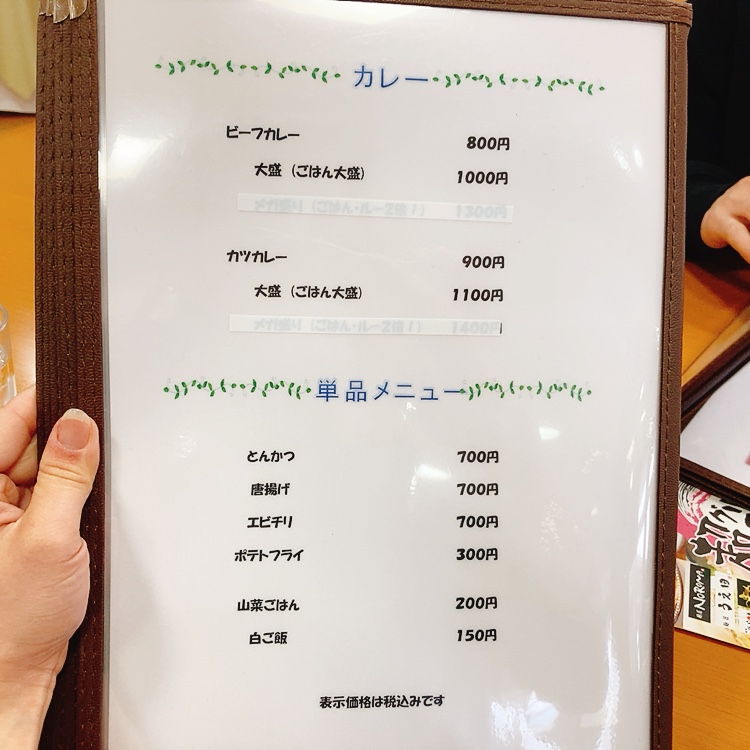 カレー
ビーフカレー 800円
大盛（ごはん大盛） 1000円
メガ盛り（ごはん・ルー2倍！） 1300円
カツカレー 900円
大盛（ごはん大盛） 1100円
メガ盛り（ごはん・ルー2倍！） 1400円
単品メニュー
とんかつ 700円
唐揚げ 700円
エビチリ 700円
ポテトフライ 300円
山菜ごはん 200円
白ご飯 150円
表示価格は税込みです
NOROMA
うえ田